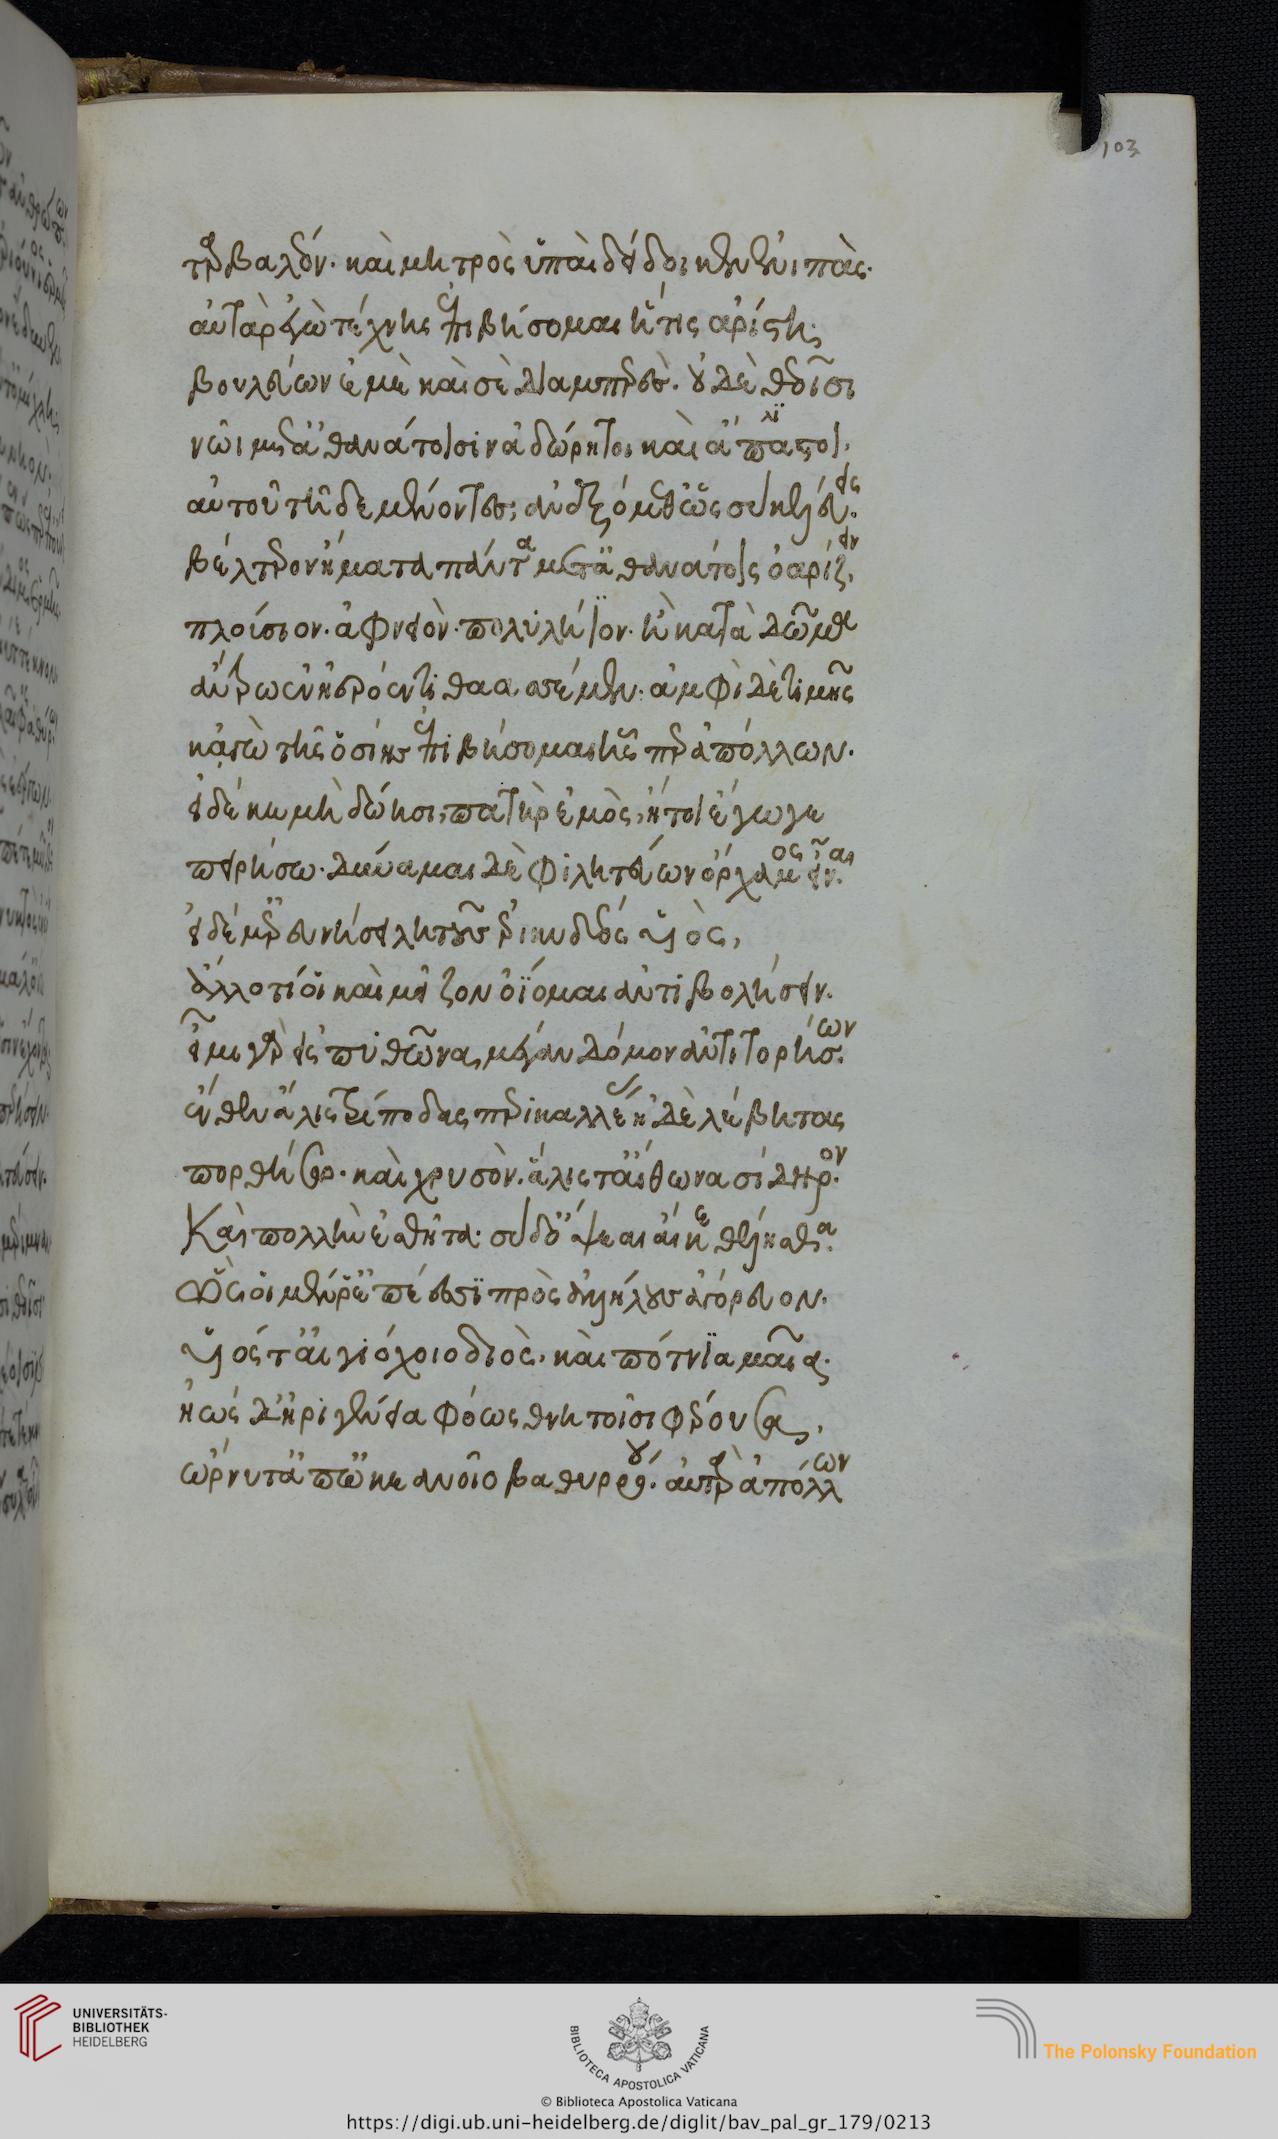 103
ταρβαλέον. καὶ μητρὸς ὑπαιδείδοικεν ἐνιπὰς.
αὐτὰρ ἐγὼ τέχνης ἐπιβήσομαι ἥτις ἀρίστη.
βουλεύων ἐμὲ καὶ σὲ διαμπερὲς. οὐδὲ θεοῖσι
νῶι μετ' ἀθανάτοισιν ἀδώρητοι καὶ ἄπαστοι.
αὐτοῦ τῆδε μένοντες, ἀνεξόμεθ' ὡς σὺ κελεύεις.
βέλτερον ἤματα πάντα μετ' ἀθανάτοις ὀαρίζειν.
πλούσιον. ἀφνειὸν. πολυλήϊον. ἢ κατὰ δῶμα
ἄντρω ἐν ἠερόεντι θαασσέμεν. ἀμφὶ δὲ τιμῆς
κἀγὼ τῆς ὁσίης ἐπιβήσομαι ἧς περ ἀπόλλων.
εἰ δέ κε μὴ δώησι πατὴρ ἐμὸς, ἤτοι ἔγωγε
πειρήσω. δύναμαι δὲ φιλητέων ὄρχαμος εἶναι.
εἰ δέ μ' ἐρευνήσει λητοῦς ἐρικυδέος υἱὸς,
ἄλλο τί οἱ καὶ μεῖζον ὀΐομαι ἀντιβολήσειν.
εἶμι γὰρ εἰς πυθῶνα, μέγαν δόμον ἀντιτορήσων.
ἔνθεν ἅλις τρίποδας περικαλλέας ἠδὲ λέβητας
πορθήσω. καὶ χρυσὸν. ἅλις τ' αἴθωνα σίδηρον.
καὶ πολλὴν ἐσθῆτα. σὺ δ' ὄψεαι αἴ κ' ἐθέλησθα.
ὣς οἱ μέν ῥ' ἐπέεσσι πρὸς ἀλλήλους ἀγόρευον.
υἱός τ' αἰγιόχοιο διὸς. καὶ πότνια μαῖα.
ἠὼς δ' ἠριγένεια φόως θνητοῖσι φέρουσα,
ὤρνυτ' ἀπ' ὠκεανοῖο βαθυρρόου. αὐτὰρ ἀπόλλων
UNIVERSITÄTS-
BIBLIOTHEK
HEIDELBERG
BIBLIOTECA APOSTOLICA VATICANA
The Polonsky Foundation
© Biblioteca Apostolica Vaticana
https://digi.ub.uni-heidelberg.de/diglit/bav_pal_gr_179/0213